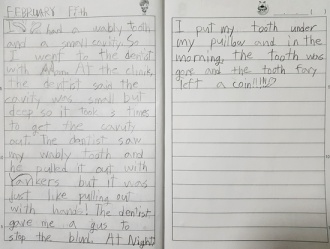 FEBRUARY 17th
I had a wably tooth
and a small cavity. So
I went to the dentist
with At the clinik,
the dentist said the
cavity was small but
deep so it took 3 times
to get the cavity
out. The dentist saw
my wably tooth and
he pulled it out with
but it was
just like pulling out
with hands! The dentist
gave me a gus to
stop the blud. At Night
I put my tooth under
my pullow and in the
morning, the tooth was
gone and the tooth fary
left a coin!!!!